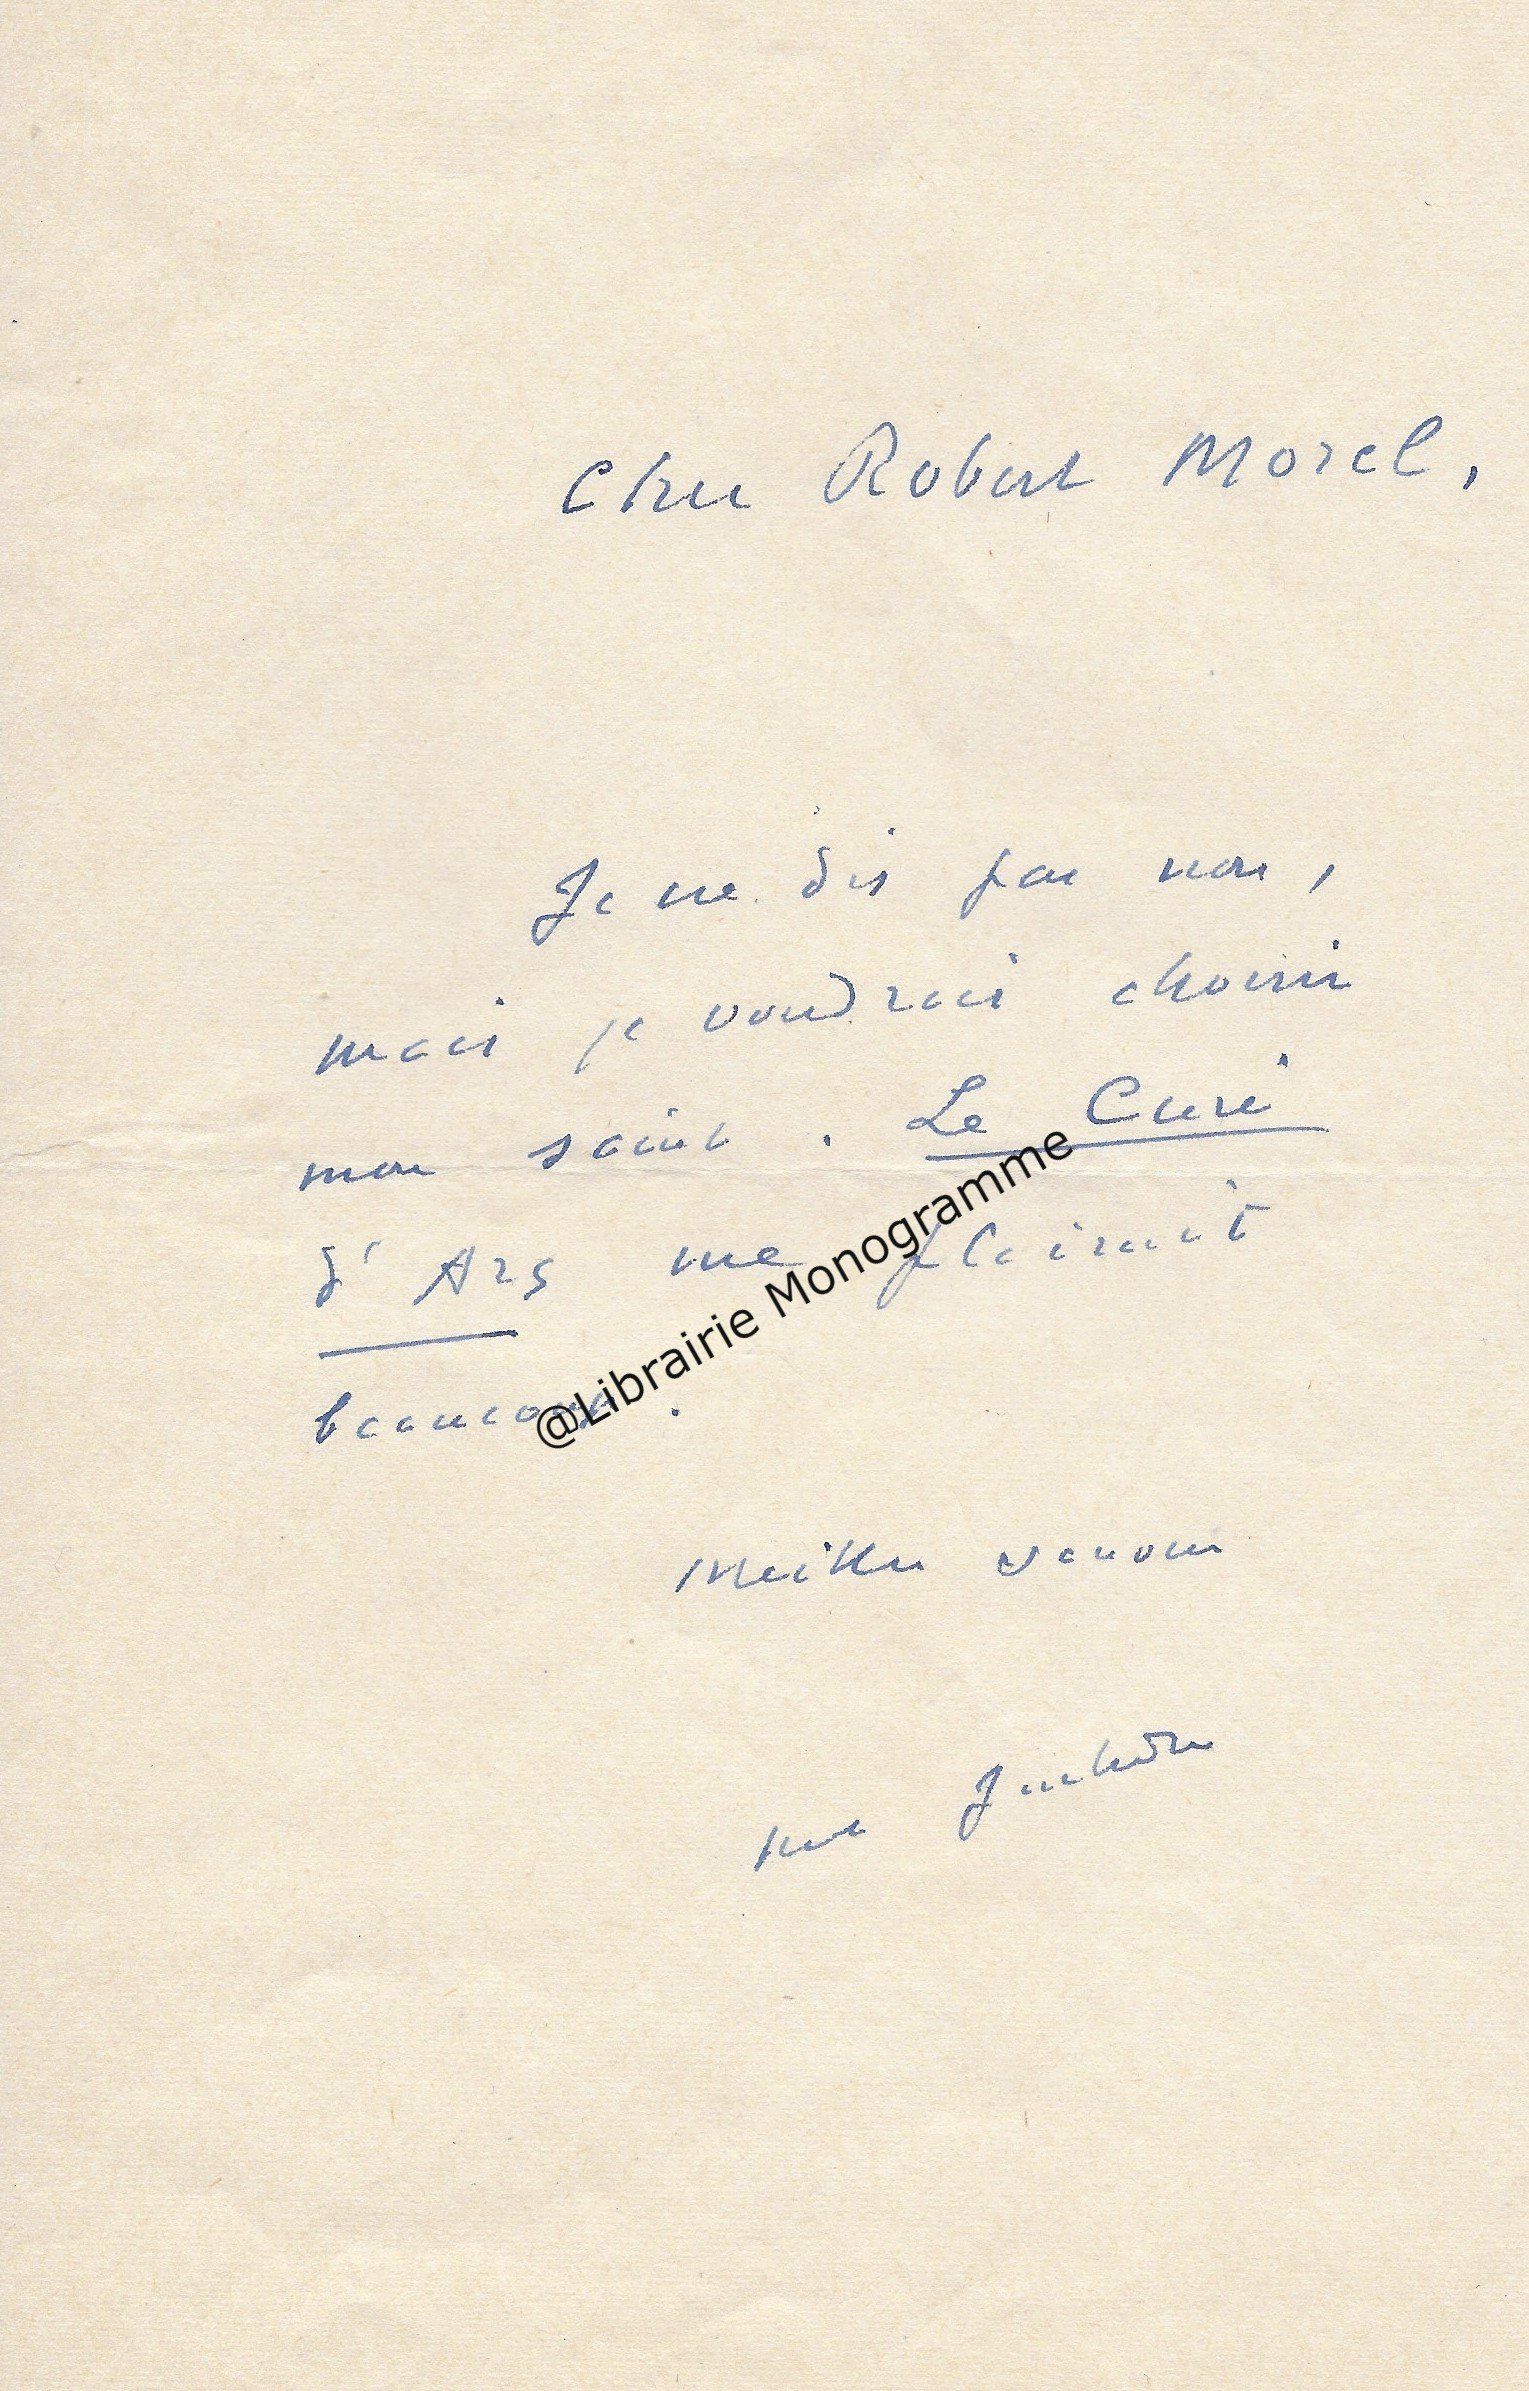 Cher Robert Morel,
Je ne dis pas non,
mais je voudrais choisir
mon saint. Le Curé
d'Ars me plairait
beaucoup.
@Librairie Monogramme
Meilleur